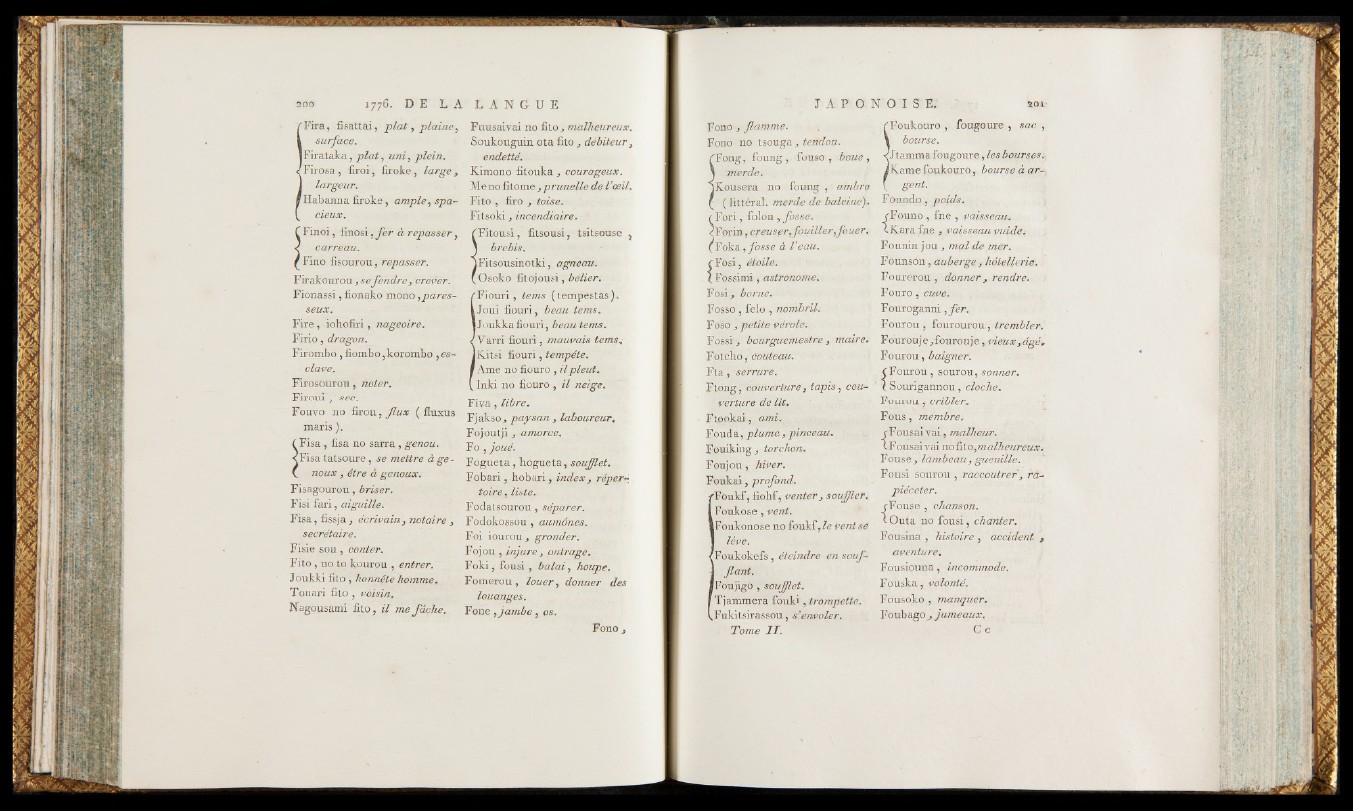 200 1776. DE LA LANGUE
Fira, fisattai, plat, plaine,
surface.
Firataka, plat, uni, plein.
Firosa, firoi, firoke, large,
largeur.
Habanna firoke, ample, spa-
cieux.
Finoi, finosi, fer à repasser,
carreau.
Fino fisourou, repasser.
Firakourou, se fendre, crever.
Fionassi, fionako mono, pares-
seux.
Fire, iohofiri, nageoire.
Firio, dragon.
Firombo, fiombo, korombo, es-
clave.
Firosourou, noter.
Firoui, sec.
Fouvo no firou, flux (fluxus
maris).
Fisa, fisa no sarra, genou.
Fisa tatsoure, se mettre à ge-
noux, être à genoux.
Fisagourou, briser.
Fisi fari, aiguille.
Fisa, fissja, écrivain, notaire,
secrétaire.
Fisie sou, conter.
Fito, no to kourou, entrer.
Joukki fito, honnête homme.
Tonari fito, voisin.
Nagousami fito, il me fâche.
Fuusaivai no fito, malheureux.
Soukouguin ota fito, débiteur,
endetté.
Kimono fitouka, courageux.
Me no fitome, prunelle de l'œil.
Fito, firo, toise.
Fitsoki, incendiaire.
Fitousi, fitsousi, tsitsouse,
brebis.
Fitsousinotki, agneau.
Osoko fitojousi, belier.
Fiouri, tems (tempestas).
Joui fiouri, beau tems.
Joukka fiouri, beau tems.
Varri fiouri, mauvais tems.
Kitsi fiouri, tempête.
Ame no fiouro, il pleut.
Inki no fiouro, il neige.
Fiva, libre.
Fjakso, paysan, laboureur.
Fojoutji, amorce.
Fo, joué.
Fogueta, hogueta, soufflet.
Fobari, hobari, index, réper-
toire, liste.
Fodatsourou, séparer.
Fodokossou, aumônes.
Foi iourou, gronder.
Fojou, injure, outrage.
Foki, fousi, balai, houpe.
Fomerou, louer, donner des
louanges.
Fone, jambe, os.
Fono,
JAPONOISE. 201
Fono, flamme.
Fono no tsouga, tendon.
Fong, foung, fouso, boue,
merde.
Kousera no foung, ambre
(littéral. merde de baleine).
Fori, folou, fosse.
Forin, creuser, fouiller, fouer.
Foka, fosse à l'eau.
Fosi, étoile.
Fossimi, astronome.
Fosi, borne.
Fosso, felo, nombril.
Foso, petite vérole.
Fossi, bourguemestre, maire.
Fotcho, couteau.
Fta, serrure.
Ftong, couverture, tapis, cou-
verture de lit.
Ftookai, ami.
Fouda, plume, pinceau.
Fouiking, torchon.
Foujou, hiver.
Foukai, profond.
Foukf, fiohf, venter, souffler.
Foukose, vent.
Foukonose no foukf, le vent se
lève.
Foukokefs, éteindre en souf-
flant.
Foujigo, soufflet.
Tjammera foukf, trompette.
Fukitsirassou, s'envoler.
Tome II.
Foukouro, fougoure, sac,
bourse.
Jtamma fougoure, les bourses.
Kame foukouro, bourse à ar-
gent.
Foundo, poids.
Founo, fne, vaisseau.
Kara fne, vaisseau vuide.
Founin jou, mal de mer.
Founson, auberge, hôtellerie.
Fourerou, donner, rendre.
Fouro, cuve.
Fouroganni, fer.
Fourou, fourourou, trembler.
Fourouje, fouronje, vieux, âgé.
Fourou, baigner.
Fourou, sourou, sonner.
Sourigannou, cloche.
Fourou, cribler.
Fous, membre.
Fousai vai, malheur.
Fousai vai no fito, malheureux.
Fouse, lambeau, guenille.
Fousi sourou, raccoutrer, ra-
piéceter.
Fouso, chanson.
Outa no fousi, chanter.
Fousina, histoire, accident,
aventure.
Fousiouna, incommode.
Fouska, volonté.
Fousoko, manquer.
Foubago, jumeaux.
C c